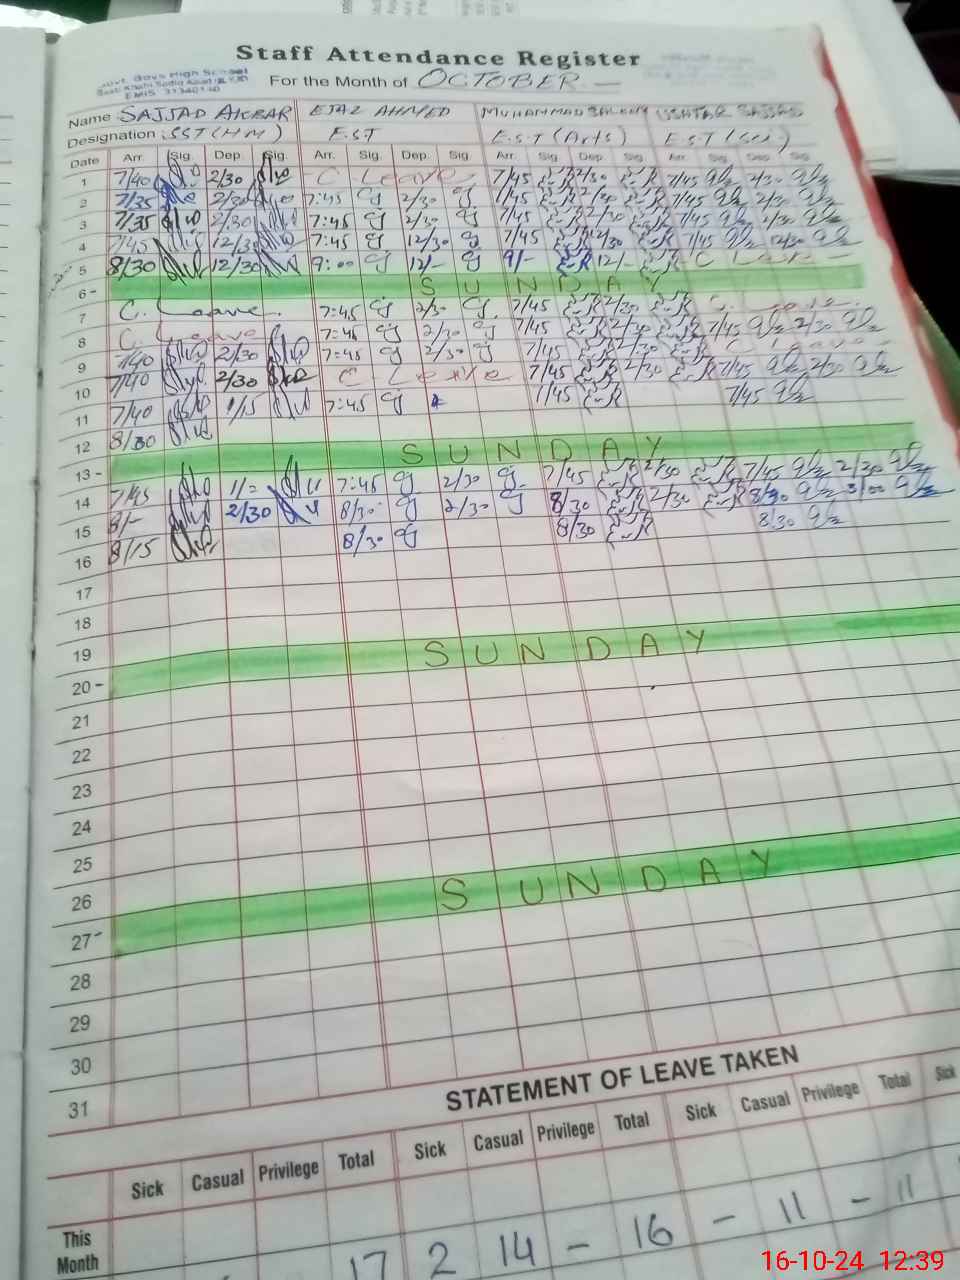 Staff Attendance Register
Govt. Boys High School
EMIS 31340110
For the Month of OCTOBER -
Name SAJJAD AKBAR EJAZ AHMED MUHAMMAD SALEEM
Designation SST (HM) E.S.T E.S.T (Arts) E.S.T (Sci.)
Date Arr. Sig. Dep. Sig. Arr. Sig. Dep. Sig. Arr. Sig. Dep. Sig. Arr. Sig. Dep. Sig.
1 7/40 2/30 C Leave 7/45 2/30 7/45 2/30
2 7/35 2/30 7:45 2/30 7/45 2/30 7/45 2/30
3 7/35 2/30 7:45 2/30 7/45 2/30 7/45 2/30
4 7/45 12/30 7:45 12/30 7/45 12/30 7/45 12/30
5 8/30 12/30 9:00 12/- 9/- 12/- C Leave
6 - SUNDAY
7 C. Leave. 7:45 2/30 7/45 2/30 C. Leave.
8 C. Leave 7:45 2/30 7/45 2/30 7/45 2/30
9 7/40 2/30 7:45 2/30 7/45 2/30 C Leave
10 7/40 2/30 C Leave 7/45 2/30 7/45 2/30
11 7/40 1/15 7:45 7/45 7/45
12 8/30
13 - SUNDAY
14 7/45 1/= 7:45 2/30 7/45 2/30 7/45 2/30
15 8/- 2/30 8/30 2/30 8/30 2/30 8/30 3/00
16 8/15 8/30 8/30 8/30
17
18
19
20 - SUNDAY
21
22
23
24
25
26
27 - SUNDAY
28
29
30
31
STATEMENT OF LEAVE TAKEN
Sick Casual Privilege Total Sick Casual Privilege Total Sick Casual Privilege Total Sick
This Month 17 2 14 - 16 - 11 - 11
16-10-24 12:39